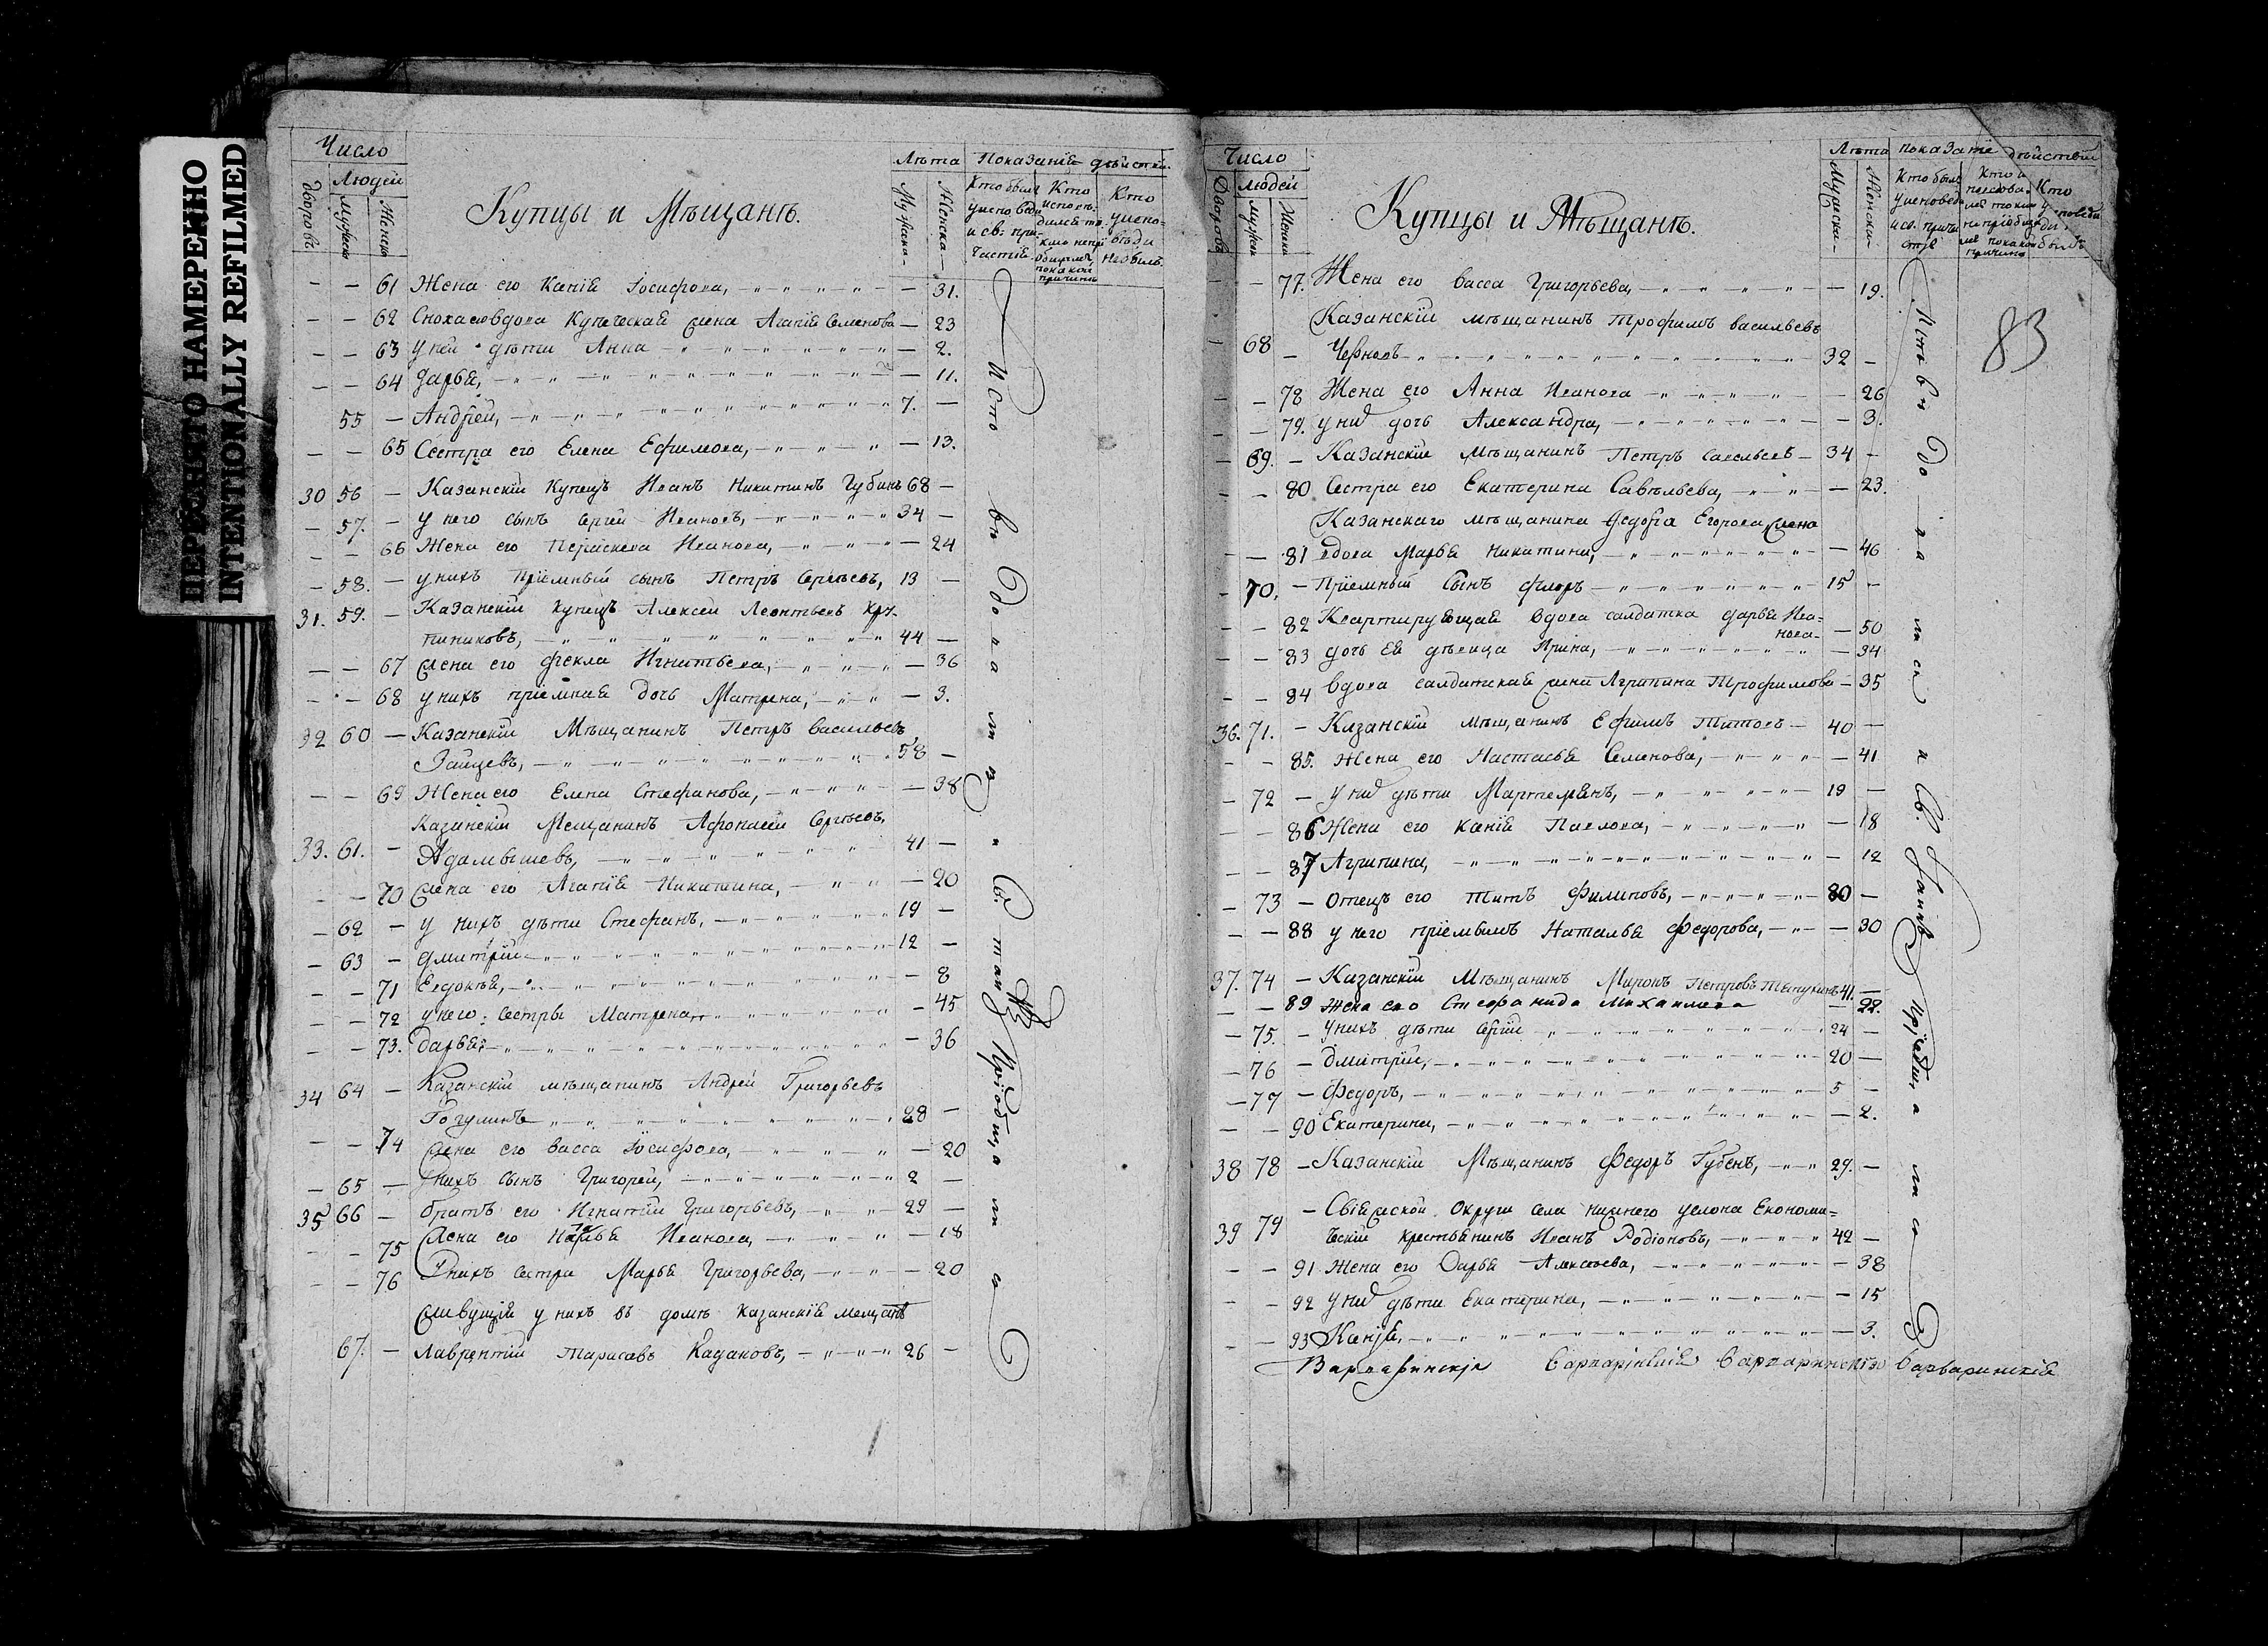 ПЕРЕСНЯТО НАМЕРЕННО
INTENTIONALLY REFILMED
Число
Людей
дворовъ
Мужеска
Женска
Купцы и Мѣщанѣ.
Лѣта
Мужеска
Женска
Показаніе дѣйствій.
Кто былъ
Кто
Кто
— — 61 Жена его Ксенія Іосифова, — 31.
— — 62 Сноха вдова Купеческая жена Агапія Семенова — 23
— — 63 у ней дѣти Анна — 2.
— — 64 Дарья, — 11.
55 — Андрей, 7. —
— — 65 Сестра его Елена Ефимова, — 13.
30 56 — Казанскій Купецъ Иванъ Никитинъ Губинъ 68 —
— 57. — у него сынъ Сергей Ивановъ, 34 —
— — 66 Жена его Параскева Иванова, — 24
— 58. — у нихъ Пріемный сынъ Петръ Сергѣевъ, 13 —
31. 59. — Казанскій купецъ Алексей Леонтьевъ Кру-
пениковъ, 44 —
— — 67 Жена его Фекла Игнатьева, — 36
— — 68 у нихъ пріемная дочь Матрена, — 3.
32 60 — Казанскій Мѣщанинъ Петръ Васильевъ
Зайцевъ, 58 —
— — 69 Жена его Елена Стефанова, — 38
Казанскій Мещанинъ Афонасей Сергѣевъ,
33. 61. — Адамышевъ, 41 —
— — 70 Жена его Агапія Никитина, — 20
— 62 — у нихъ дѣти Стефанъ, 19 —
— 63 — Дмитрій 12 —
— — 71 Евдокѣя, — 8
— — 72 у него: сестры Матрена — 45
— — 73. Дарья — 36
34 64 — Казанскій мѣщанинъ Андрей Григорьевъ
Гогулинъ 28 —
— — 74 Жена его Васса Іосифова, — 20
— 65 — У нихъ сынъ Григорей, 2 —
35 66 — братъ его Игнатій Григорьевъ, 29 —
— — 75 Жена его Марья Иванова, — 18
— — 76 У нихъ сестра Марья Григорьева, — 20
Живущій у нихъ въ домѣ Казанскій мещанъ
67. — Лаврентій Тарасовъ Кадаковъ, 26 —
Исповѣдались и Св. таинъ Пріобщались
Число
людей
Дворовъ
Мужеска
Женска
Купцы и Мѣщанѣ.
Лѣта
Мужеска
Женска
показаніе дѣйствій
83
— — 77. Жена его Васса Григорьева, — 19.
Казанскій мѣщанинъ Трофимъ Васильевъ
— 68 — Черновъ 32 —
— — 78 Жена его Анна Иванова — 26
— — 79. у нихъ дочь Александра, — 3.
— 69. — Казанскій Мѣщанинъ Петръ Савельевъ — 34 —
— — 80 Сестра его Екатерина Савѣльева, — 23.
Казанскаго мѣщанина Федора Егорова жена
— — 81 вдова Марья Никитина, — 46
— 70. — Пріемный Сынъ Флоръ 15 —
— — 82 Квартирующая вдова салдатка Дарья Ива-
нова — 50
— — 83 дочь Ея дѣвица Ирина, — 34
— — 84 вдова салдатская жена Агрипина Трофимова — 35
36. 71. — Казанскій мѣщанинъ Ефимъ Титовъ 40 —
— — 85. Жена его Настасья Семенова, — 41
— 72 — у нихъ дѣти Мартемьянъ, 19 —
— — 86 Жена его Ксенія Павлова, — 18
— — 87 Агрипина, — 12
— 73 — Отецъ его Титъ Филиповъ, 80 —
— — 88 у него пріемышъ Наталья Федорова, — 30
37. 74 — Казанскій Мѣщанинъ Миронъ Петровъ 41. —
— — 89 Жена его Стефанида Михаилова — 22.
— 75. — У нихъ дѣти Сергій 24 —
— 76 — Дмитрій, 20 —
— 77 — Федоръ, 5 —
— — 90 Екатерина, — 2.
38 78 — Казанскій Мѣщанинъ Федоръ Губенъ, 29. —
— Свіяжской Округи села нижнего услона Економи-
39 79 ческій крестьянинъ Иванъ Родіоновъ, 42 —
— — 91 Жена его Дарья Алексѣева, — 38
— — 92 У нихъ дѣти Екатерина, — 15
— — 93 Ксенія, — 3.
Исповѣдовались и Св. Таинъ Пріобщались
Варваринскія Варваринскія Варваринскія Варваринскія